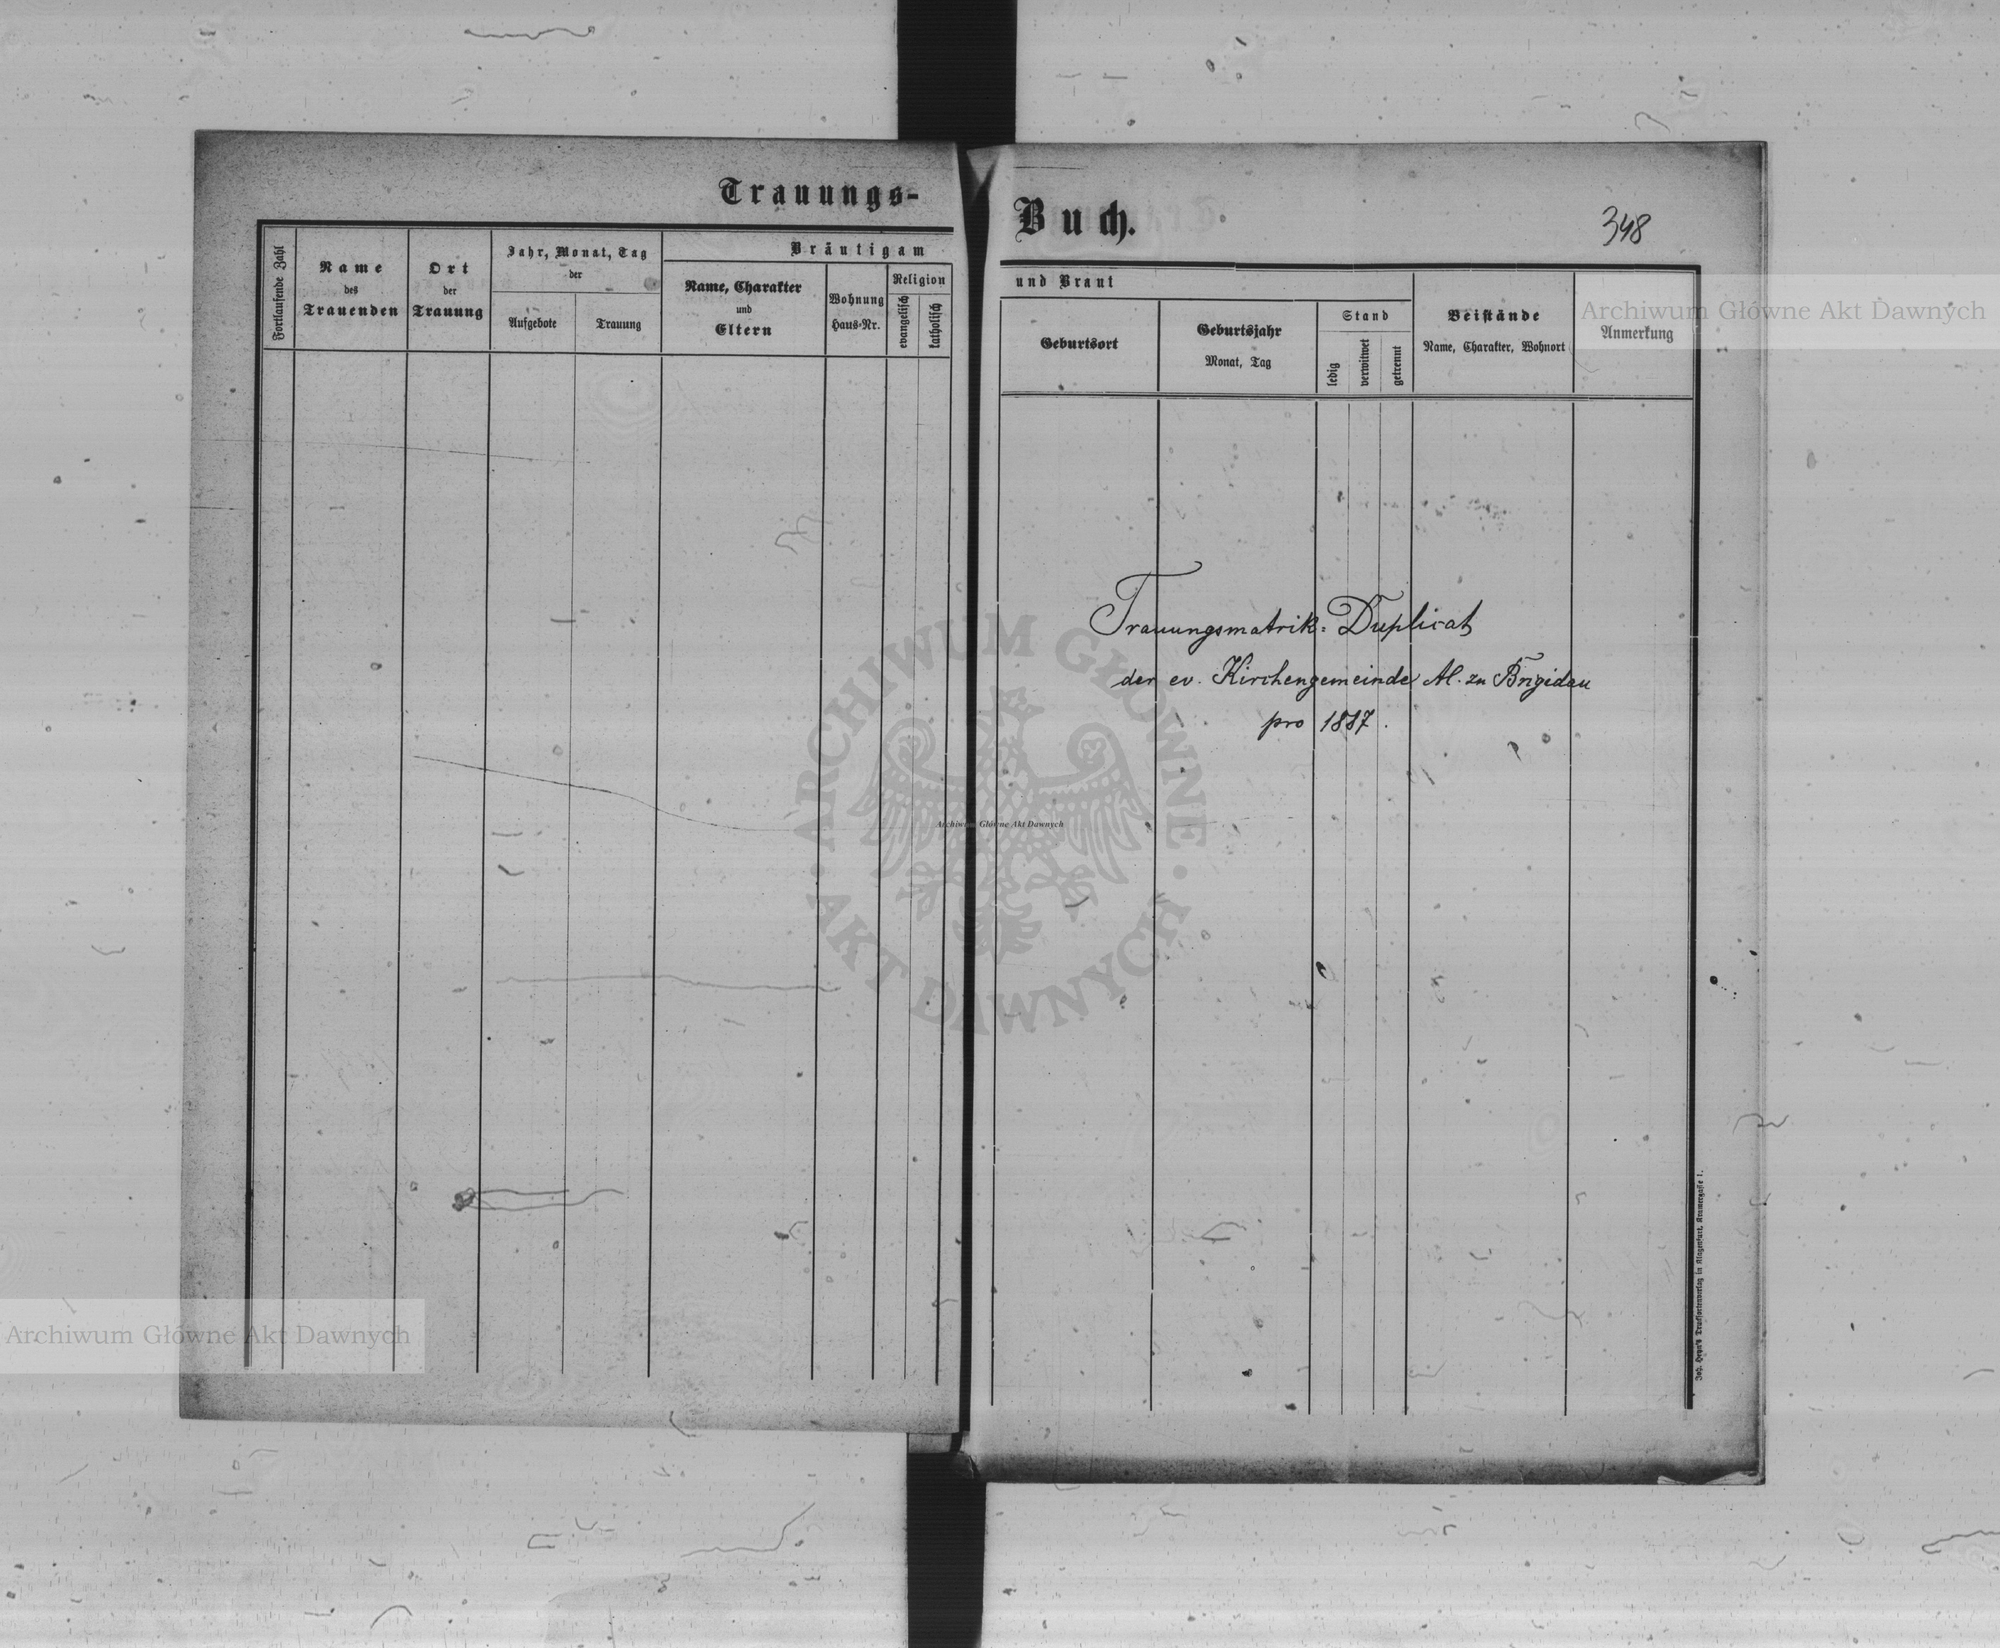 Trauungs-
Fortlaufende Zahl
Name
des
Trauenden
Ort
der
Trauung
Jahr, Monat, Tag
der
Aufgebote
Trauung
Bräutigam
Name, Charakter
und
Eltern
Wohnung
Haus-Nr.
Religion
evangelisch
katholisch
Buch.
348
und Braut
Geburtsort
Geburtsjahr
Monat, Tag
Stand
ledig
verwitwet
getrennt
Beistände
Name, Charakter, Wohnort
Anmerkung
Archiwum Główne Akt Dawnych
Trauungsmatrik-Duplicat
der ev. Kirchengemeinde A. zu Brigidau
pro 1887.
ARCHIWUM GŁÓWNE
AKT DAWNYCH
Archiwum Główne Akt Dawnych
Archiwum Główne Akt Dawnych
in Klagenfurt, Kramergasse 1.